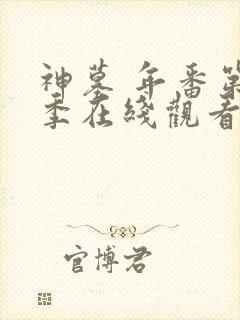 神墓 年番第
季在綫觀看
官博君